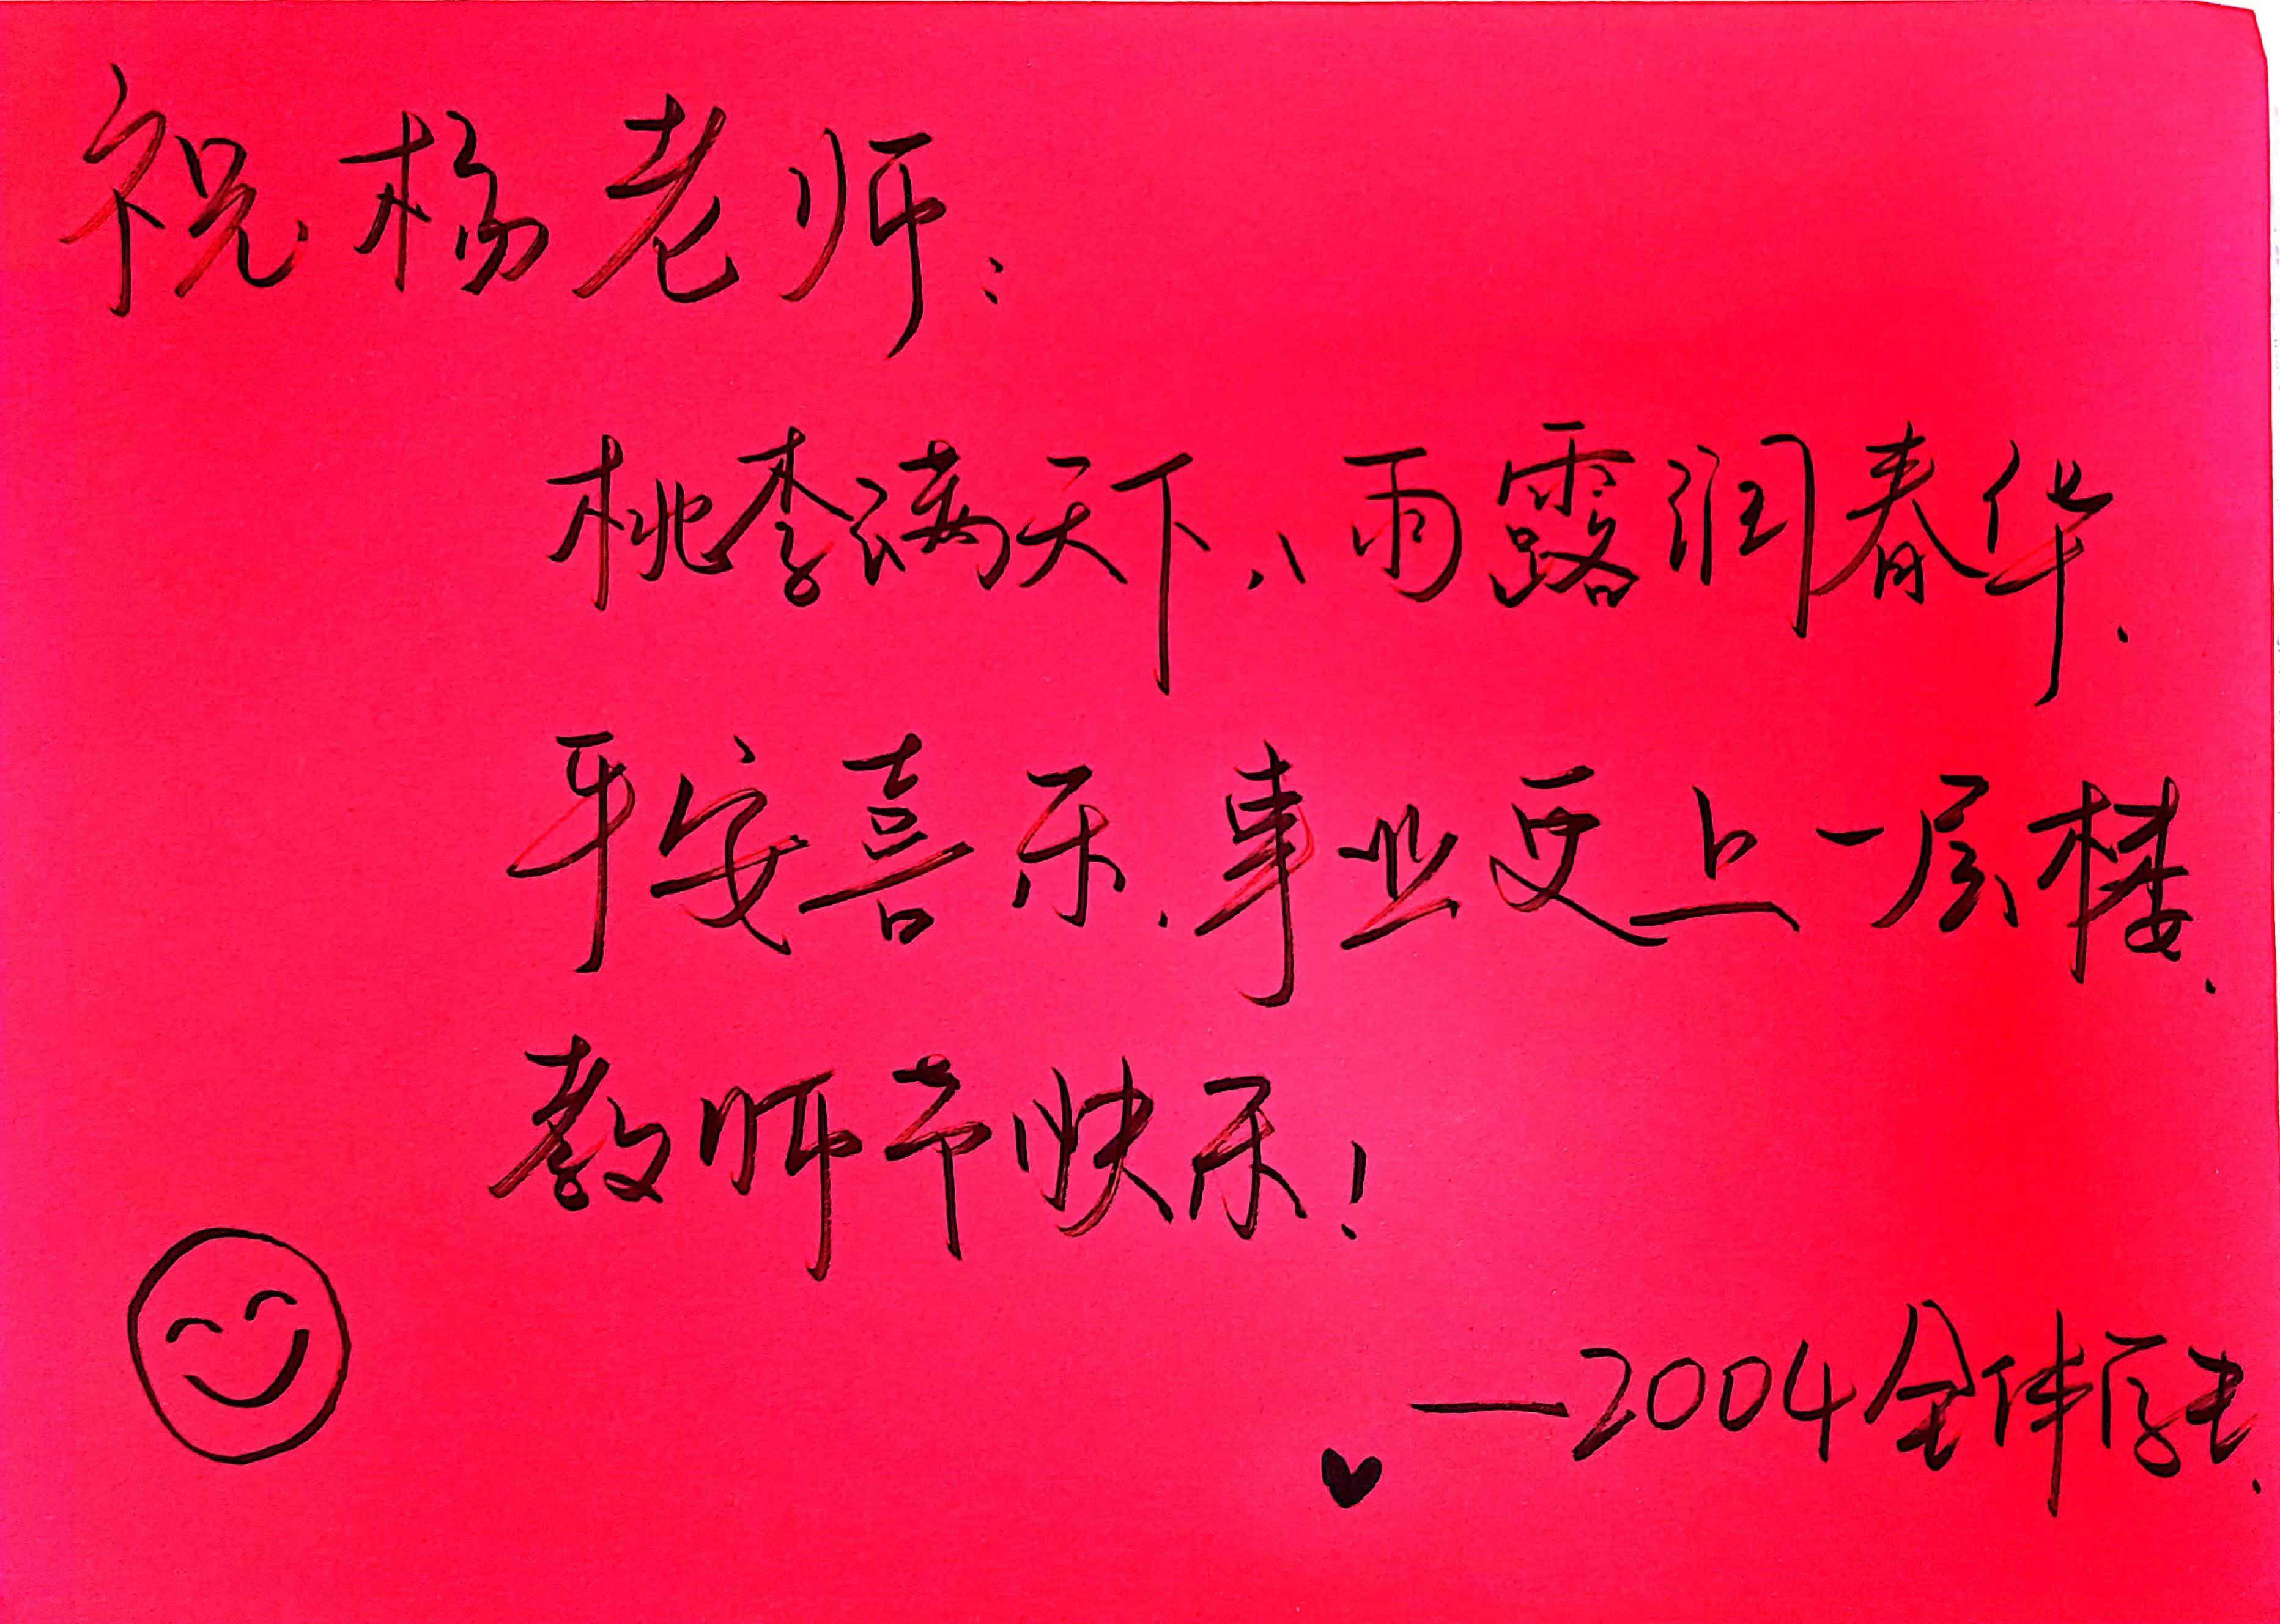 祝杨老师：
桃李满天下、雨露润春华.
平安喜乐.事业更上一层楼.
教师节快乐！
—2004全体学生.